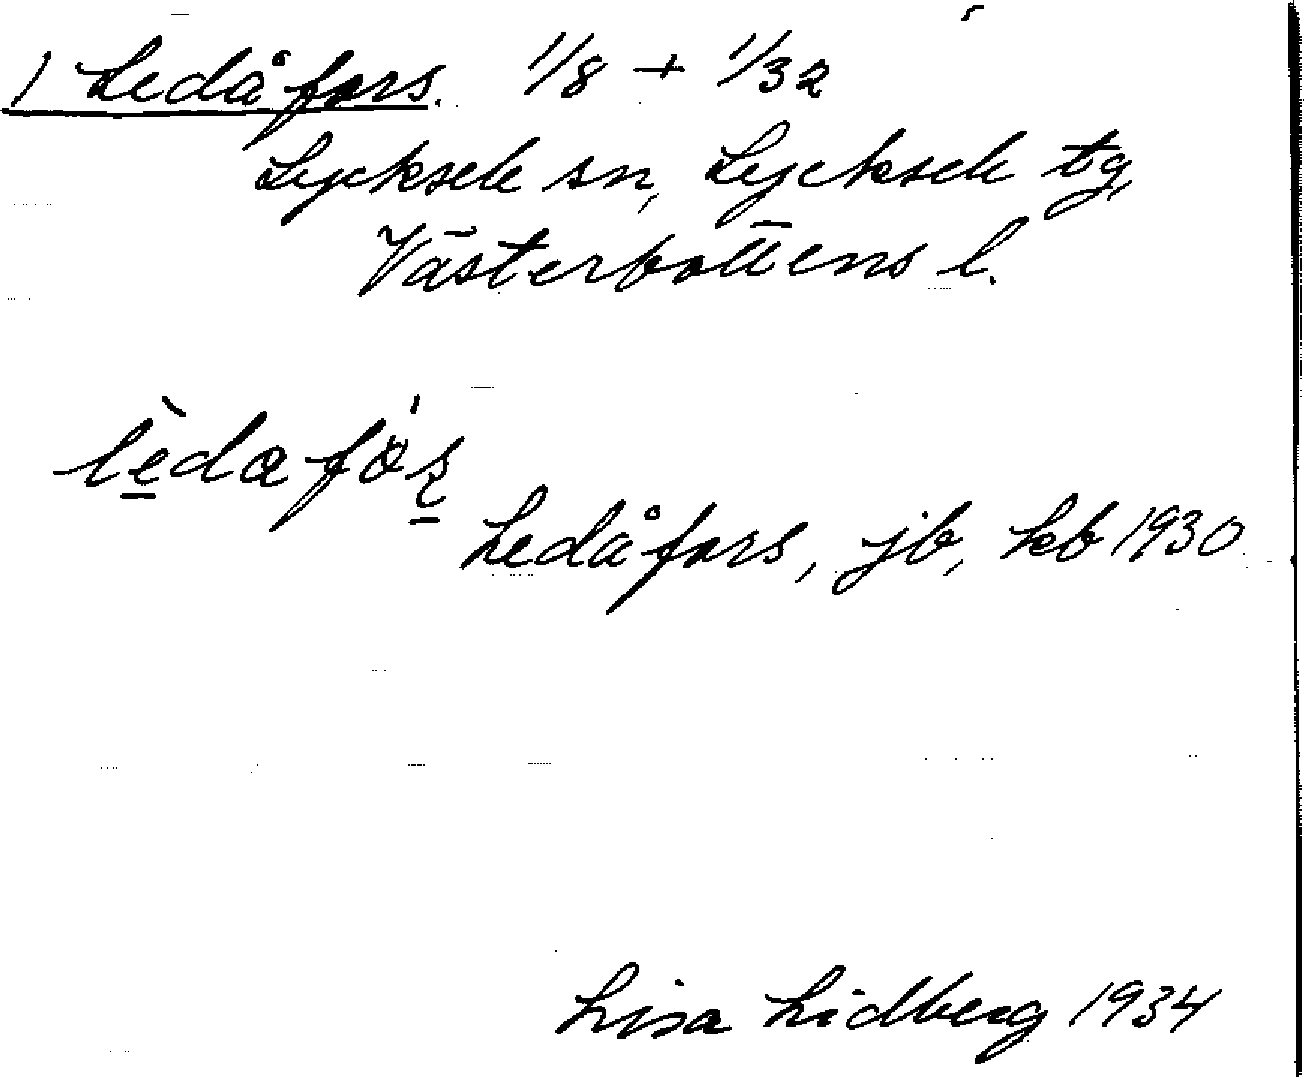 1 Ledåfors. 1/8 + 1/32
Lycksele sn, Lycksele tg,
Västerbottens l.
Ledåfors, jb, kb 1930
Lisa Lidberg 1934